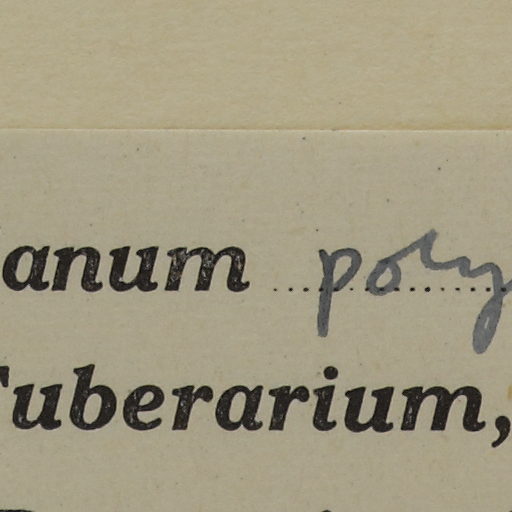 anum poly
Tuberarium,